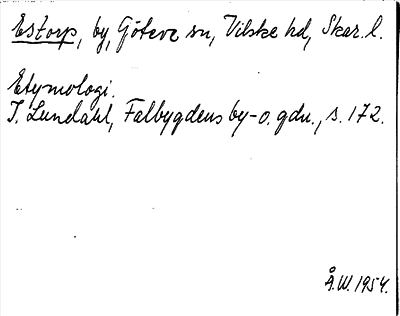 Estorp, by, Göteve sn, Vilske hd, Skar. l.
Etymologi.
I. Lundahl, Falbygdens by- o. gdn., s. 172.
Å.W. 1954.